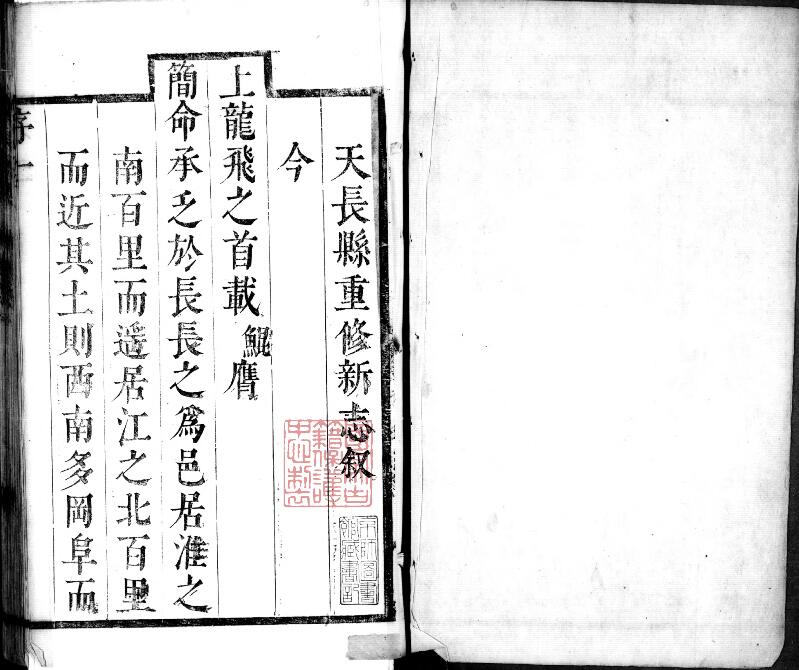 天長縣重修新志叙
今
上龍飛之首載鯤膺
簡命承乏於長長之爲邑居淮之
南百里而遥居江之北百里
而近其土則西南多岡阜而
序一
京師圖書館藏書記